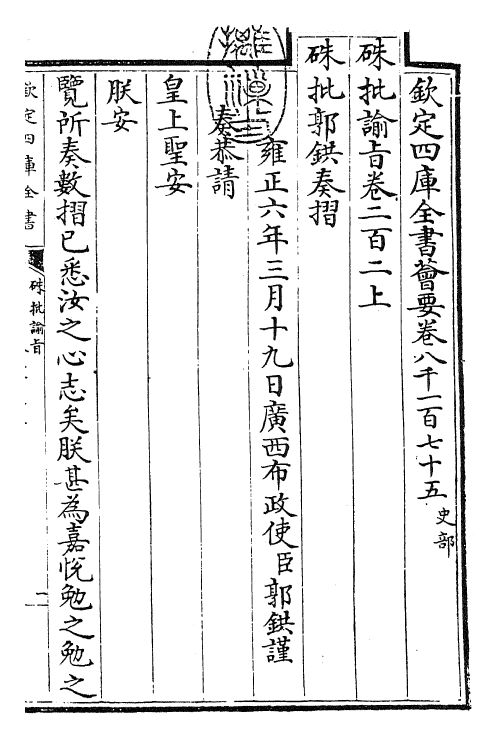 欽定四庫全書薈要卷八千一百七十五 史部
硃批諭旨卷二百二上
硃批郭鉷奏摺
雍正六年三月十九日廣西布政使臣郭鉷謹
奏恭請
皇上聖安
朕安
覽所奏數摺已悉汝之心志矣朕甚為嘉悅勉之勉之
欽定四庫全書
硃批諭旨
一